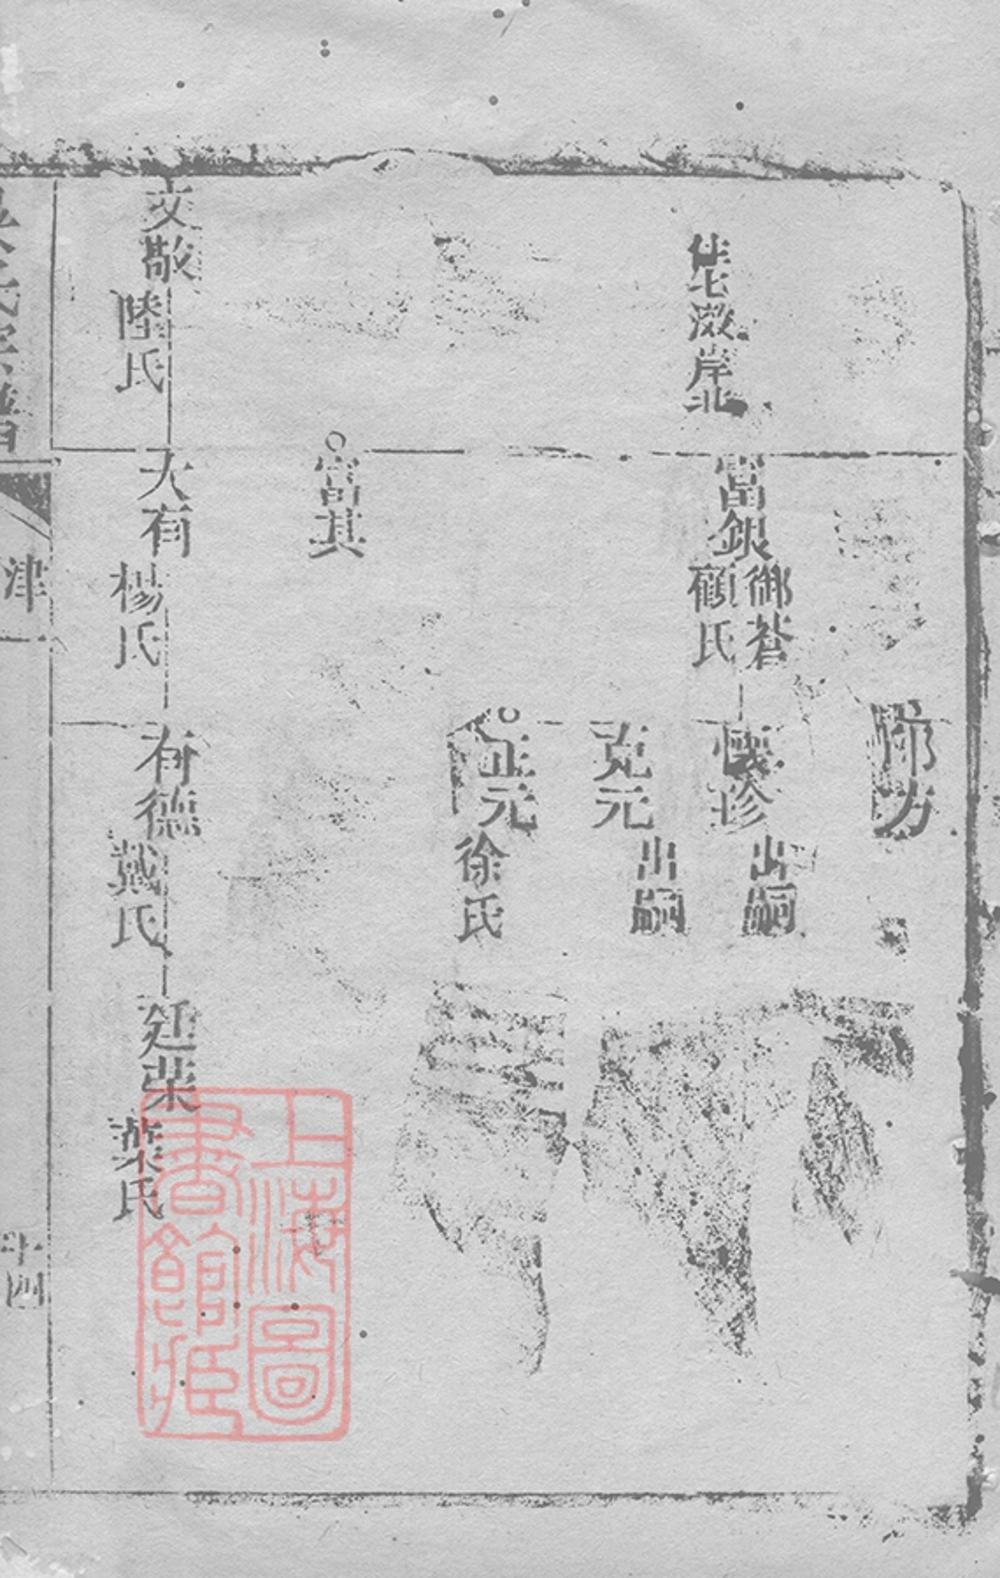 富銀
御蒼
顧氏
懷珍
出嗣
克元
出嗣
正元
徐氏
富其
文敬
陸氏
大有
楊氏
有德
戴氏
廷荣
葉氏
氏宗譜
津
十四
上海圖
書館藏